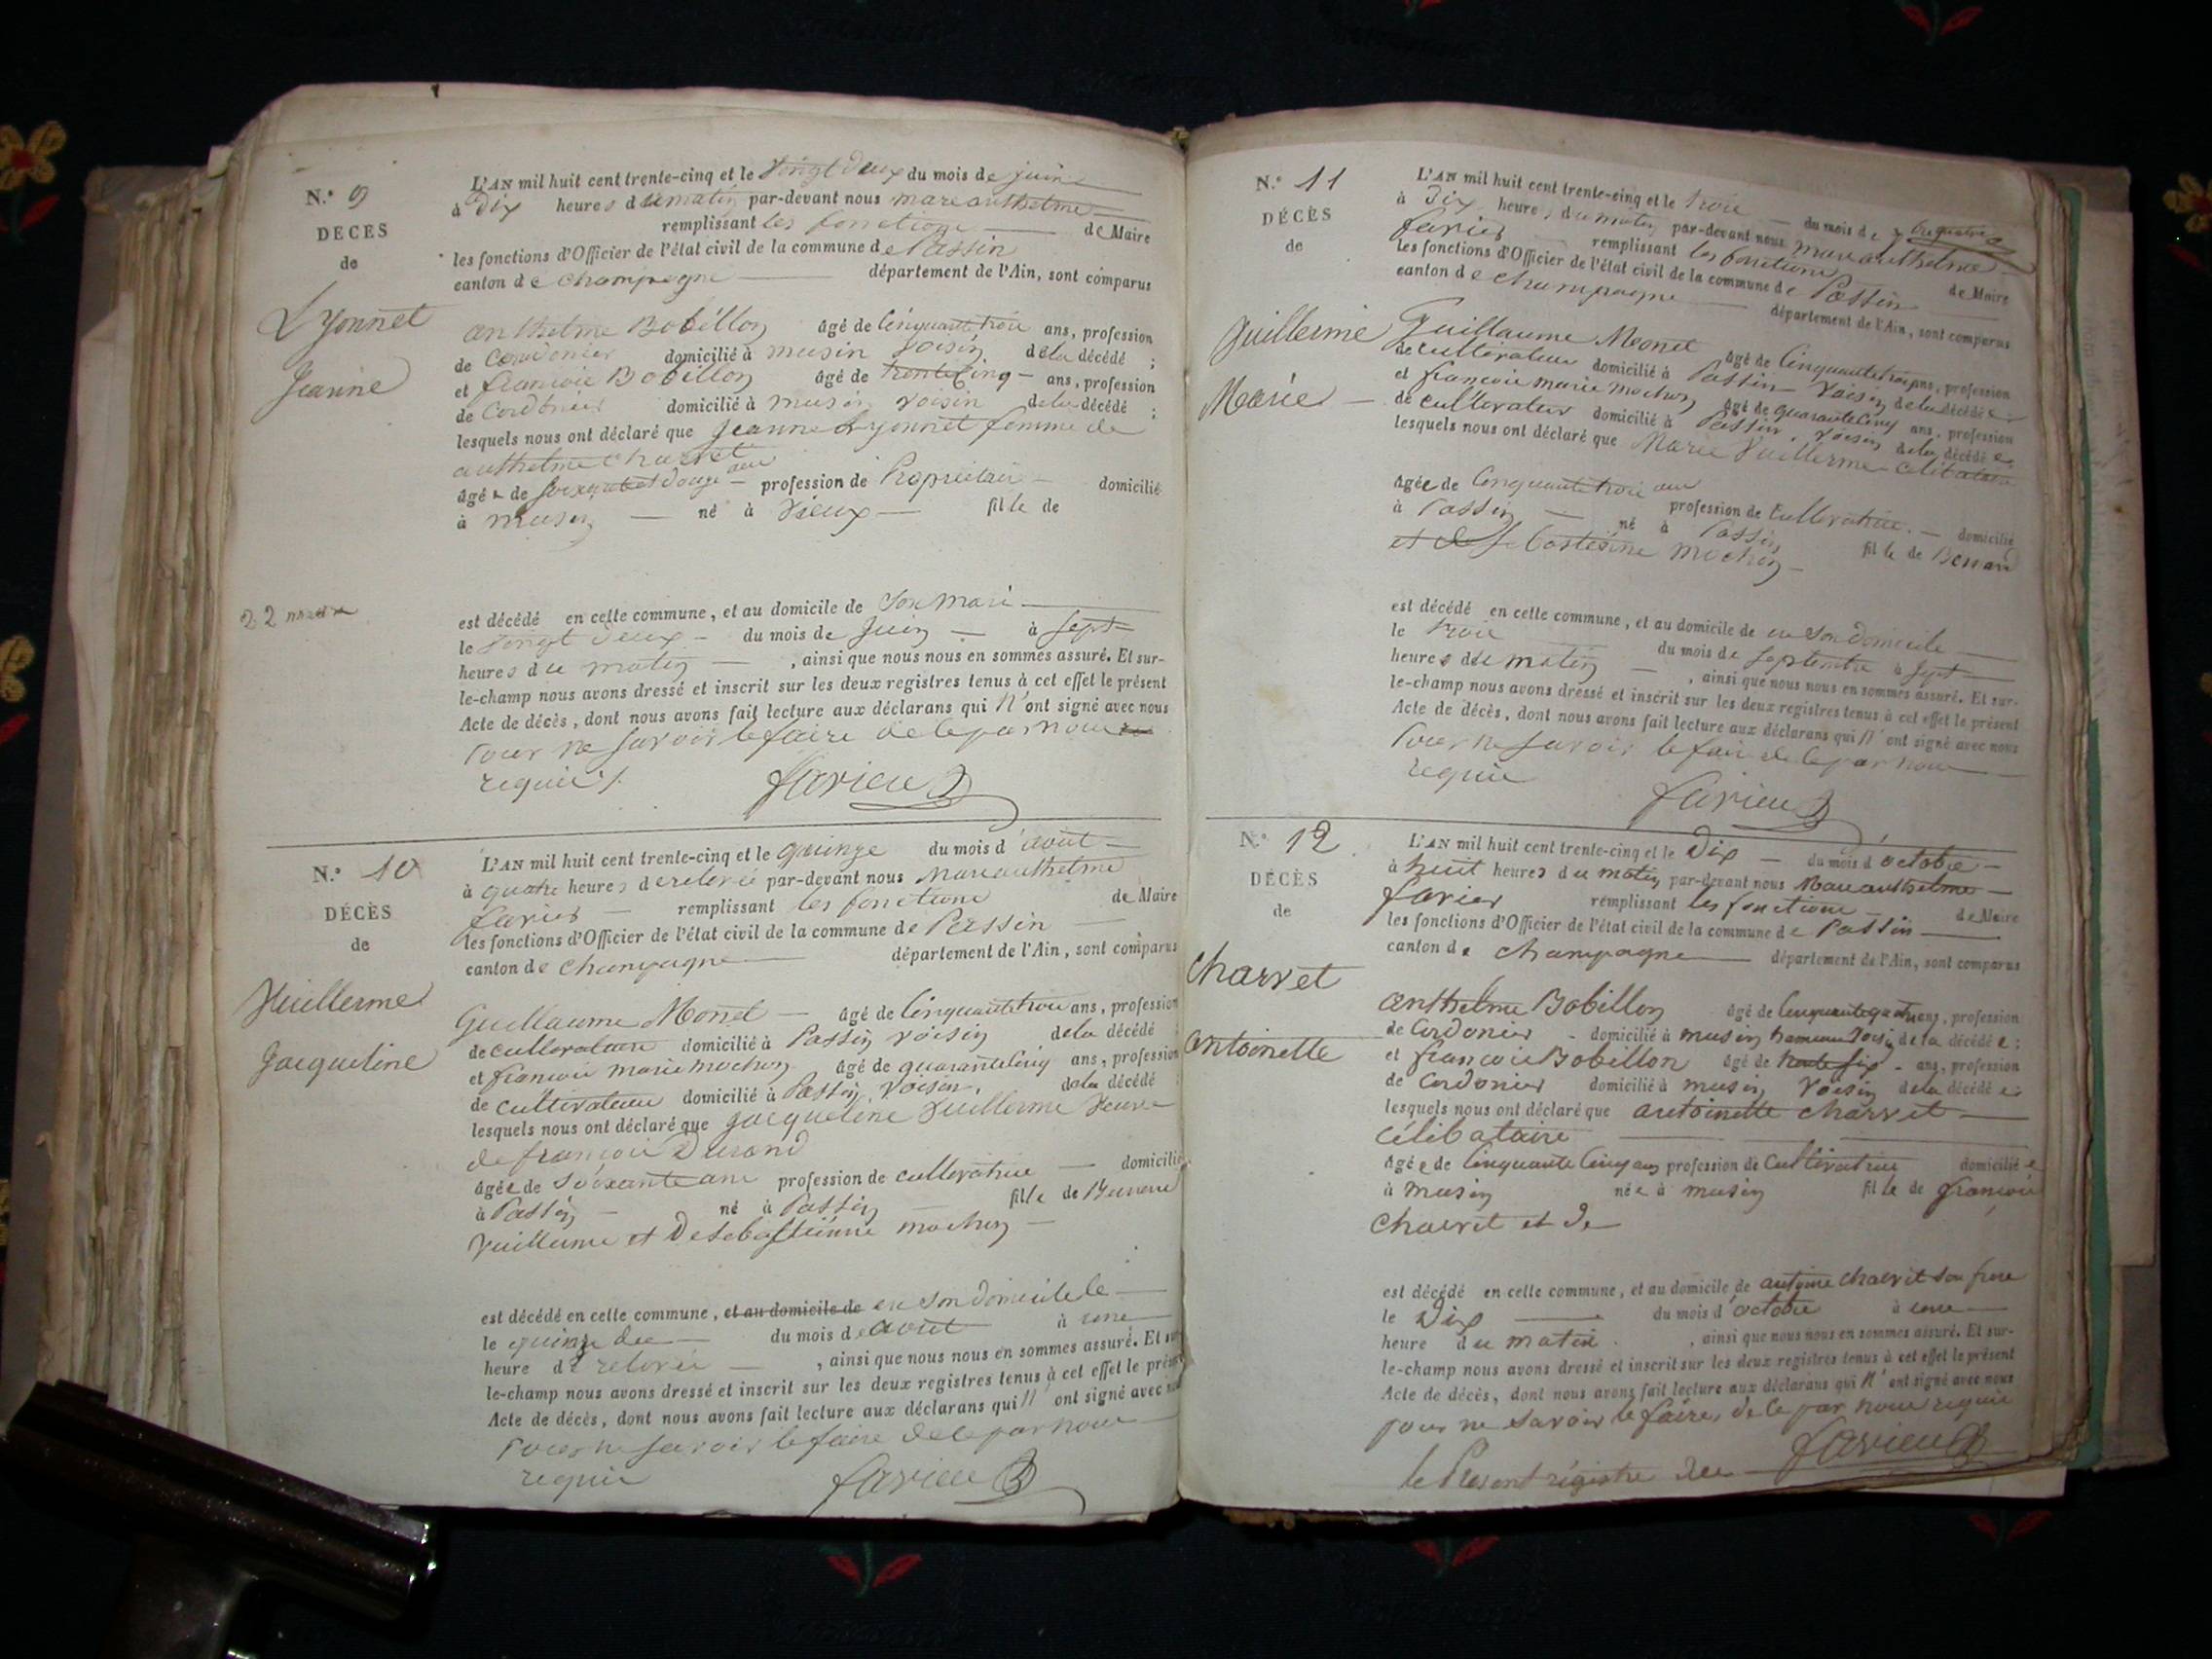 N.° 9
DÉCÈS
de
Lyonnet
Jeanne
L'AN mil huit cent trente-cinq et le vingt deux du mois de juin
à Dix heures du matin par-devant nous marc anthelme
remplissant les fonctions de Maire
les fonctions d'Officier de l'état civil de la commune de Passin
canton de champagne département de l'Ain, sont comparus
anthelme Bobillon âgé de Cinquante trois ans, profession
de Cordonier domicilié à musin Voisin de la décédé ;
et francois Bobillon âgé de trente Cinq ans, profession
de Cordonier domicilié à musin voisin de la décédé ;
lesquels nous ont déclaré que Jeanne Lyonnet femme de
anthelme Charvet
âgée de soixante et douze ans profession de Propriétaire domicilié
à musin né à Vieux fille de
22
est décédé en cette commune, et au domicile de Son mari
le vingt Deux du mois de Juin à sept
heures du matin , ainsi que nous nous en sommes assuré. Et sur-
le-champ nous avons dressé et inscrit sur les deux registres tenus à cet effet le présent
Acte de décès, dont nous avons fait lecture aux déclarans qui N'ont signé avec nous
Pour ne savoir le faire de ce par nous
requis
favier
N.° 10
DÉCÈS
de
Vuillerme
Jacqueline
L'AN mil huit cent trente-cinq et le quinze du mois d'août
à quatre heures de relevée par-devant nous Marc anthelme
favier remplissant les fonctions de Maire
les fonctions d'Officier de l'état civil de la commune de Passin
canton de Champagne département de l'Ain, sont comparus
Guillaume Monet âgé de Cinquante trois ans, profession
de cultivateur domicilié à Passin voisin de la décédé
et francois marie mochon âgé de quarante cinq ans, profession
de cultivateur domicilié à Passin, Voisin, de la décédé
lesquels nous ont déclaré que Jacqueline Vuillerme Veuve
de francois Durand
âgée de Soixante ans profession de cultivatrice domicilié
à Passin né à Passin fille de
Vuillerme et De sebastienne mochon
est décédé en cette commune, et au domicile de en son domicile le
le quinze du mois de août à une
heure de relevée , ainsi que nous nous en sommes assuré. Et sur
le-champ nous avons dressé et inscrit sur les deux registres tenus à cet effet le présent
Acte de décès, dont nous avons fait lecture aux déclarans qui N'ont signé avec nous
Pour ne savoir le faire de ce par nous
requis
favier
N.° 11
DÉCÈS
de
Vuillerme
Marie
L'AN mil huit cent trente-cinq et le trois du mois de
à Dix heures du matin par-devant nous marc anthelme
favier remplissant les fonctions de Maire
les fonctions d'Officier de l'état civil de la commune de Passin
canton de champagne département de l'Ain, sont comparus
Guillaume Monet âgé de Cinquante trois ans, profession
de cultivateur domicilié à Passin Voisin de la décédée
et francois marie mochon âgé de quarante cinq ans, profession
de cultivateur domicilié à Passin, voisin de la décédée
lesquels nous ont déclaré que Marie Vuillerme Célibataire
âgée de Cinquante trois ans profession de Cultivatrice domicilié
à Passin né à Passin fille de
et de Sebastienne mochon
est décédé en cette commune, et au domicile de en son domicile
le trois du mois de septembre à sept
heures du matin , ainsi que nous nous en sommes assuré. Et sur-
le-champ nous avons dressé et inscrit sur les deux registres tenus à cet effet le présent
Acte de décès, dont nous avons fait lecture aux déclarans qui N'ont signé avec nous
Pour ne savoir le faire de ce par nous
requis
favier
N.° 12
DÉCÈS
de
Charvet
antoinette
L'AN mil huit cent trente-cinq et le Dix du mois d'octobre
à huit heures du matin par-devant nous Marc anthelme
favier remplissant les fonctions de Maire
les fonctions d'Officier de l'état civil de la commune de Passin
canton de champagne département de l'Ain, sont comparus
anthelme Bobillon âgé de Cinquante quatre ans, profession
de Cordonier domicilié à musin hameau Voisin de la décédée ;
et francois Bobillon âgé de trente six ans, profession
de Cordonier domicilié à musin, Voisin de la décédée
lesquels nous ont déclaré que antoinette charvet
célibataire
âgée de Cinquante Cinq ans profession de Cultivatrice domiciliée
à musin née à musin fille de francois
charvet et de
est décédé en cette commune, et au domicile de antoine charvet son frere
le Dix du mois d'octobre à une
heure du matin , ainsi que nous nous en sommes assuré. Et sur-
le-champ nous avons dressé et inscrit sur les deux registres tenus à cet effet le présent
Acte de décès, dont nous avons fait lecture aux déclarans qui N'ont signé avec nous
pour ne savoir le faire, de ce par nous requis
favier
le Présent régistre